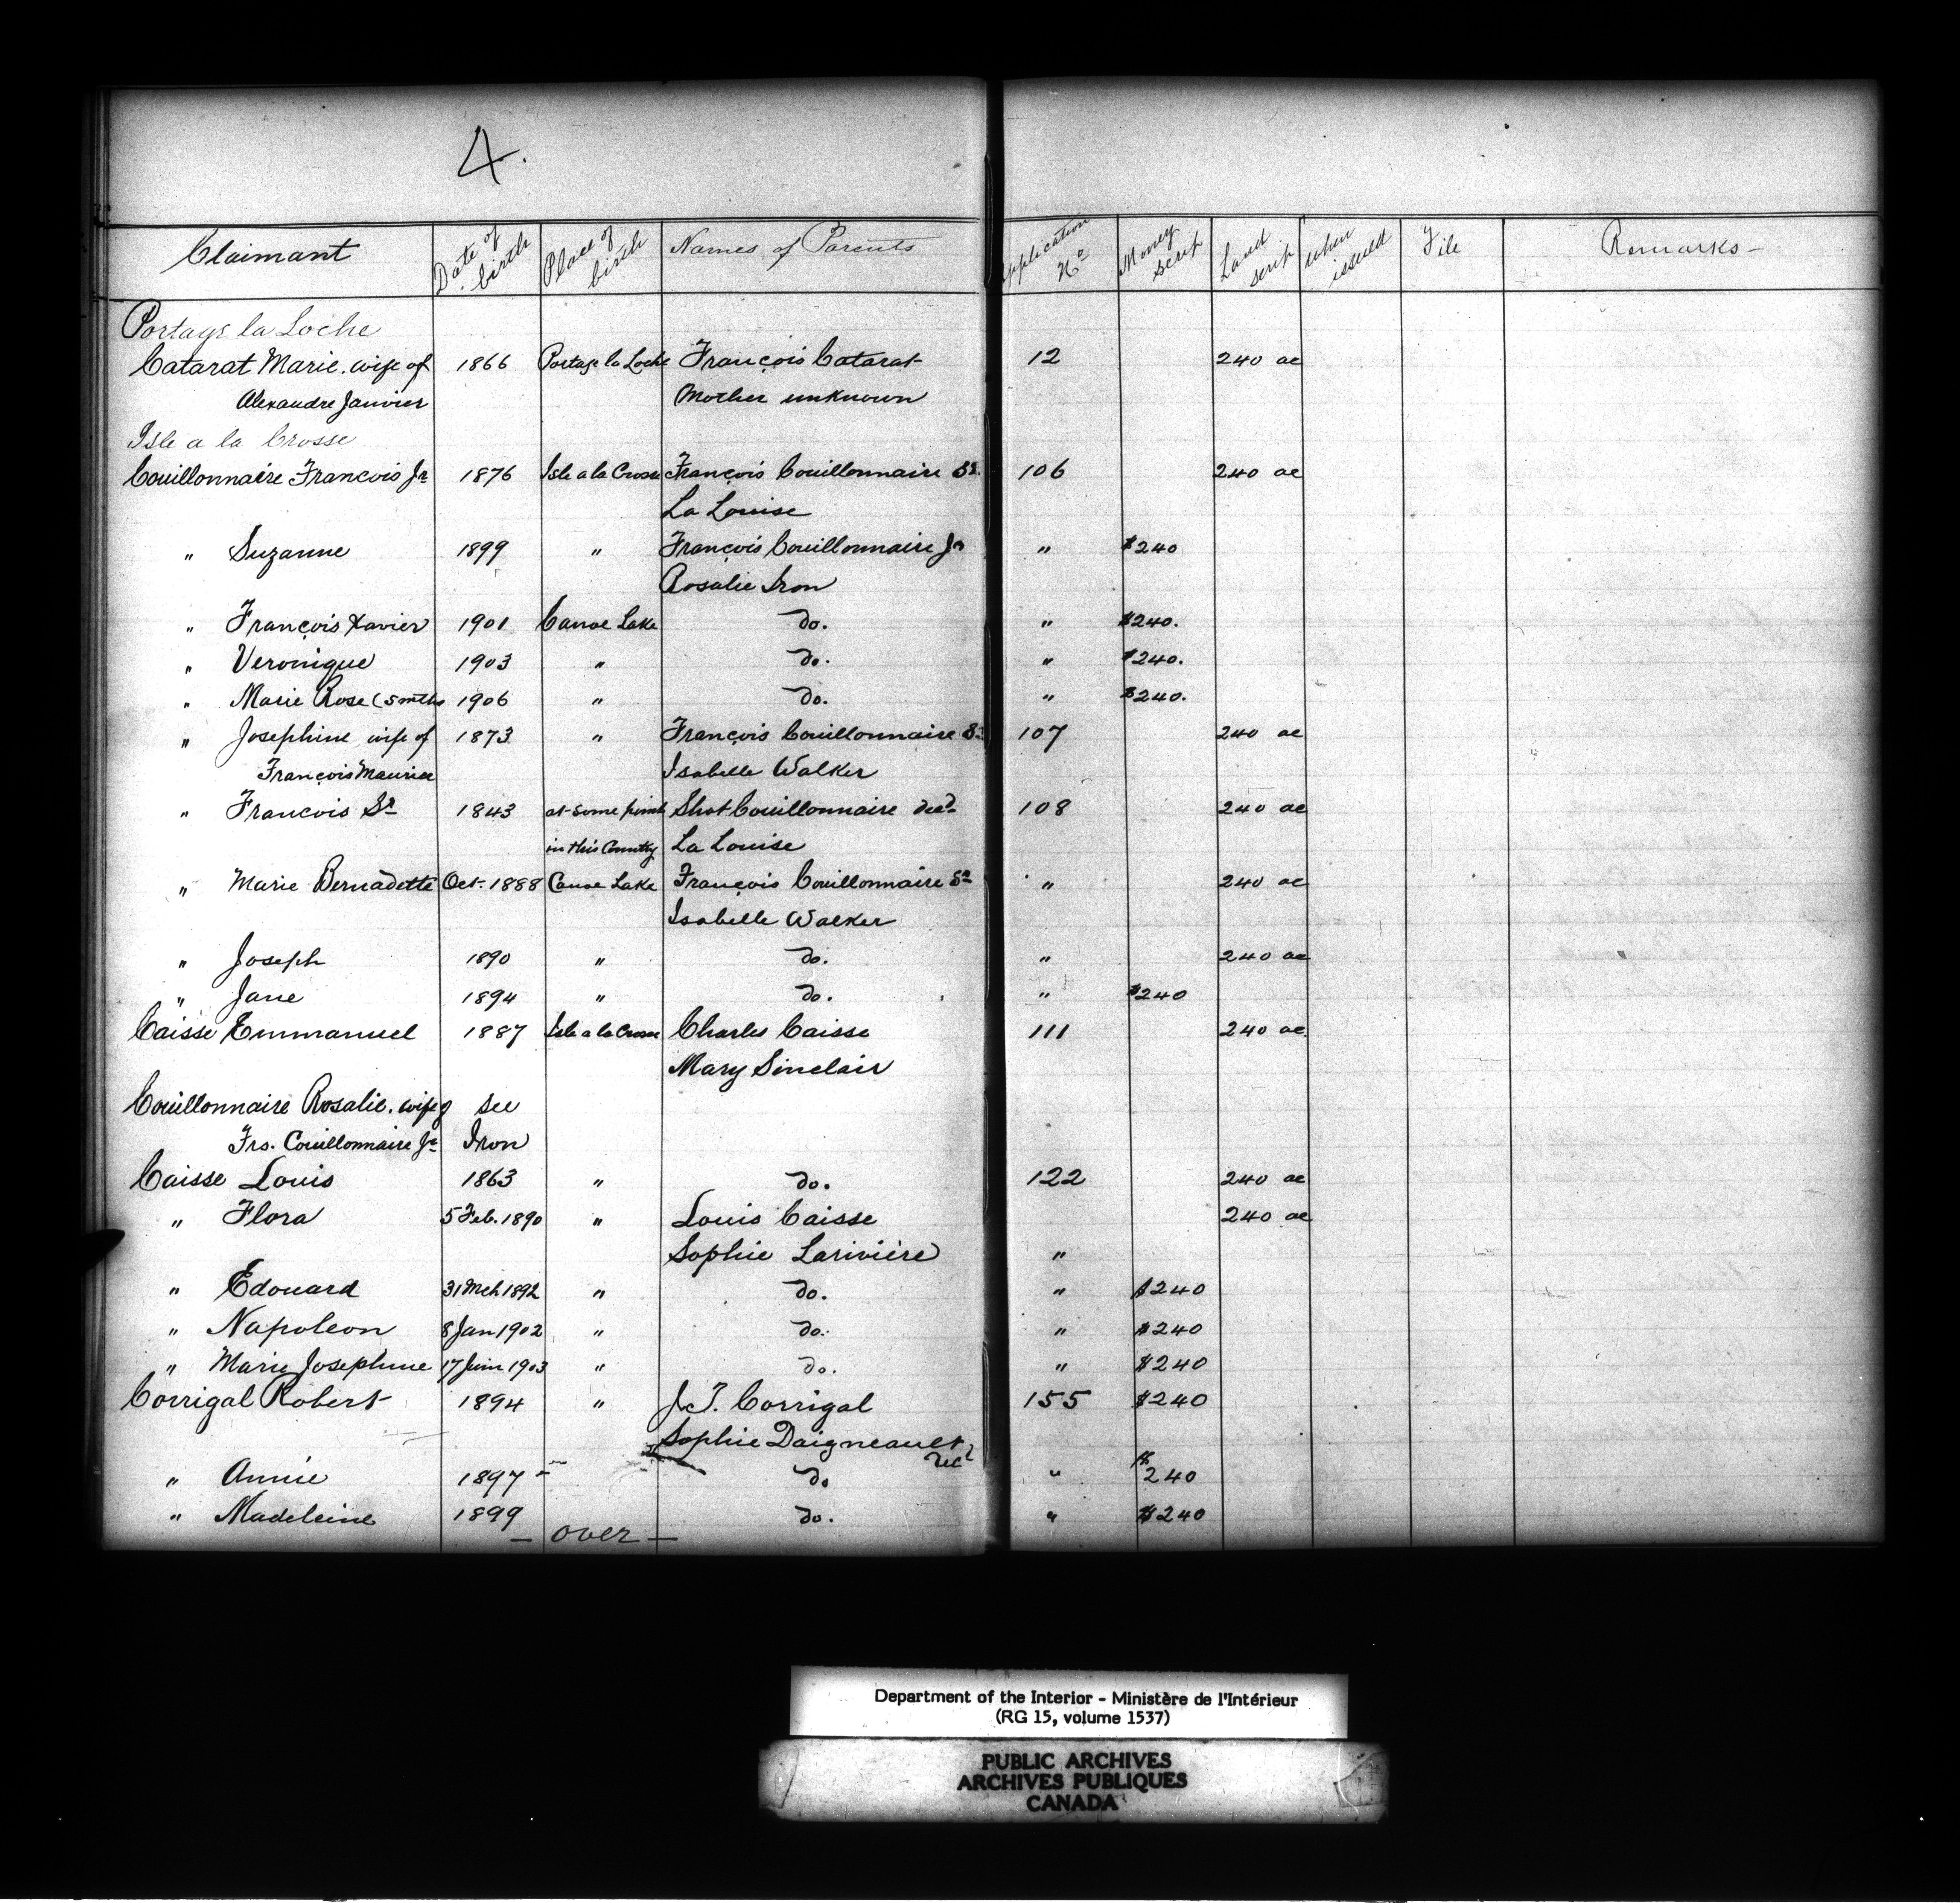 4.
Claimant Date of birth Place of birth Names of Parents Application No Money scrip Land scrip when issued File Remarks –
Portage la Loche
Catarat Marie. wife of 1866 Portage la Loche François Catarat 12 240 ac
Alexandre Janvier Mother unknown
Isle a la Crosse
Couillonnaire Francois Jr 1876 Isle a la Crosse François Couillonnaire Sr. 106 240 ac
La Louise
" Suzanne 1899 " François Couillonnaire Jr " $240
Rosalie Iron
" François Xavier 1901 Canoe Lake do. " $240.
" Veronique 1903 " do. " $240.
" Marie Rose (5 mths 1906 " do. " $240.
" Josephine wife of 1873 " François Couillonnaire Sr 107 240 ac
François Maurice Isabelle Walker
" Francois Sr 1843 at some point Shot Couillonnaire decd 108 240 ac
in this Country La Louise
" Marie Bernadette Oct. 1888 Canoe Lake François Couillonnaire Sr " 240 ac
Isabelle Walker
" Joseph 1890 " do. " 240 ac
" Jane 1894 " do. " $240
Caisse Emmanuel 1887 Isle a la Crosse Charles Caisse 111 240 ac.
Mary Sinclair
Couillonnaire Rosalie. wife of see
Frs. Couillonnaire Jr Iron
Caisse Louis 1863 " do. 122 240 ac
" Flora 5 Feb. 1890 " Louis Caisse 240 ac
Sophie Larivière "
" Edouard 31 Mch 1892 " do. " $240
" Napoleon 8 Jan 1902 " do. " $240
" Marie Josephine 17 Juin 1903 " do. " $240
Corrigal Robert 1894 " J. T. Corrigal 155 $240
Sophie Daigneault
decd
" Annie 1897 " do " $240
" Madeleine 1899 do. " $240
– over –
Department of the Interior - Ministère de l'Intérieur
(RG 15, volume 1537)
PUBLIC ARCHIVES
ARCHIVES PUBLIQUES
CANADA